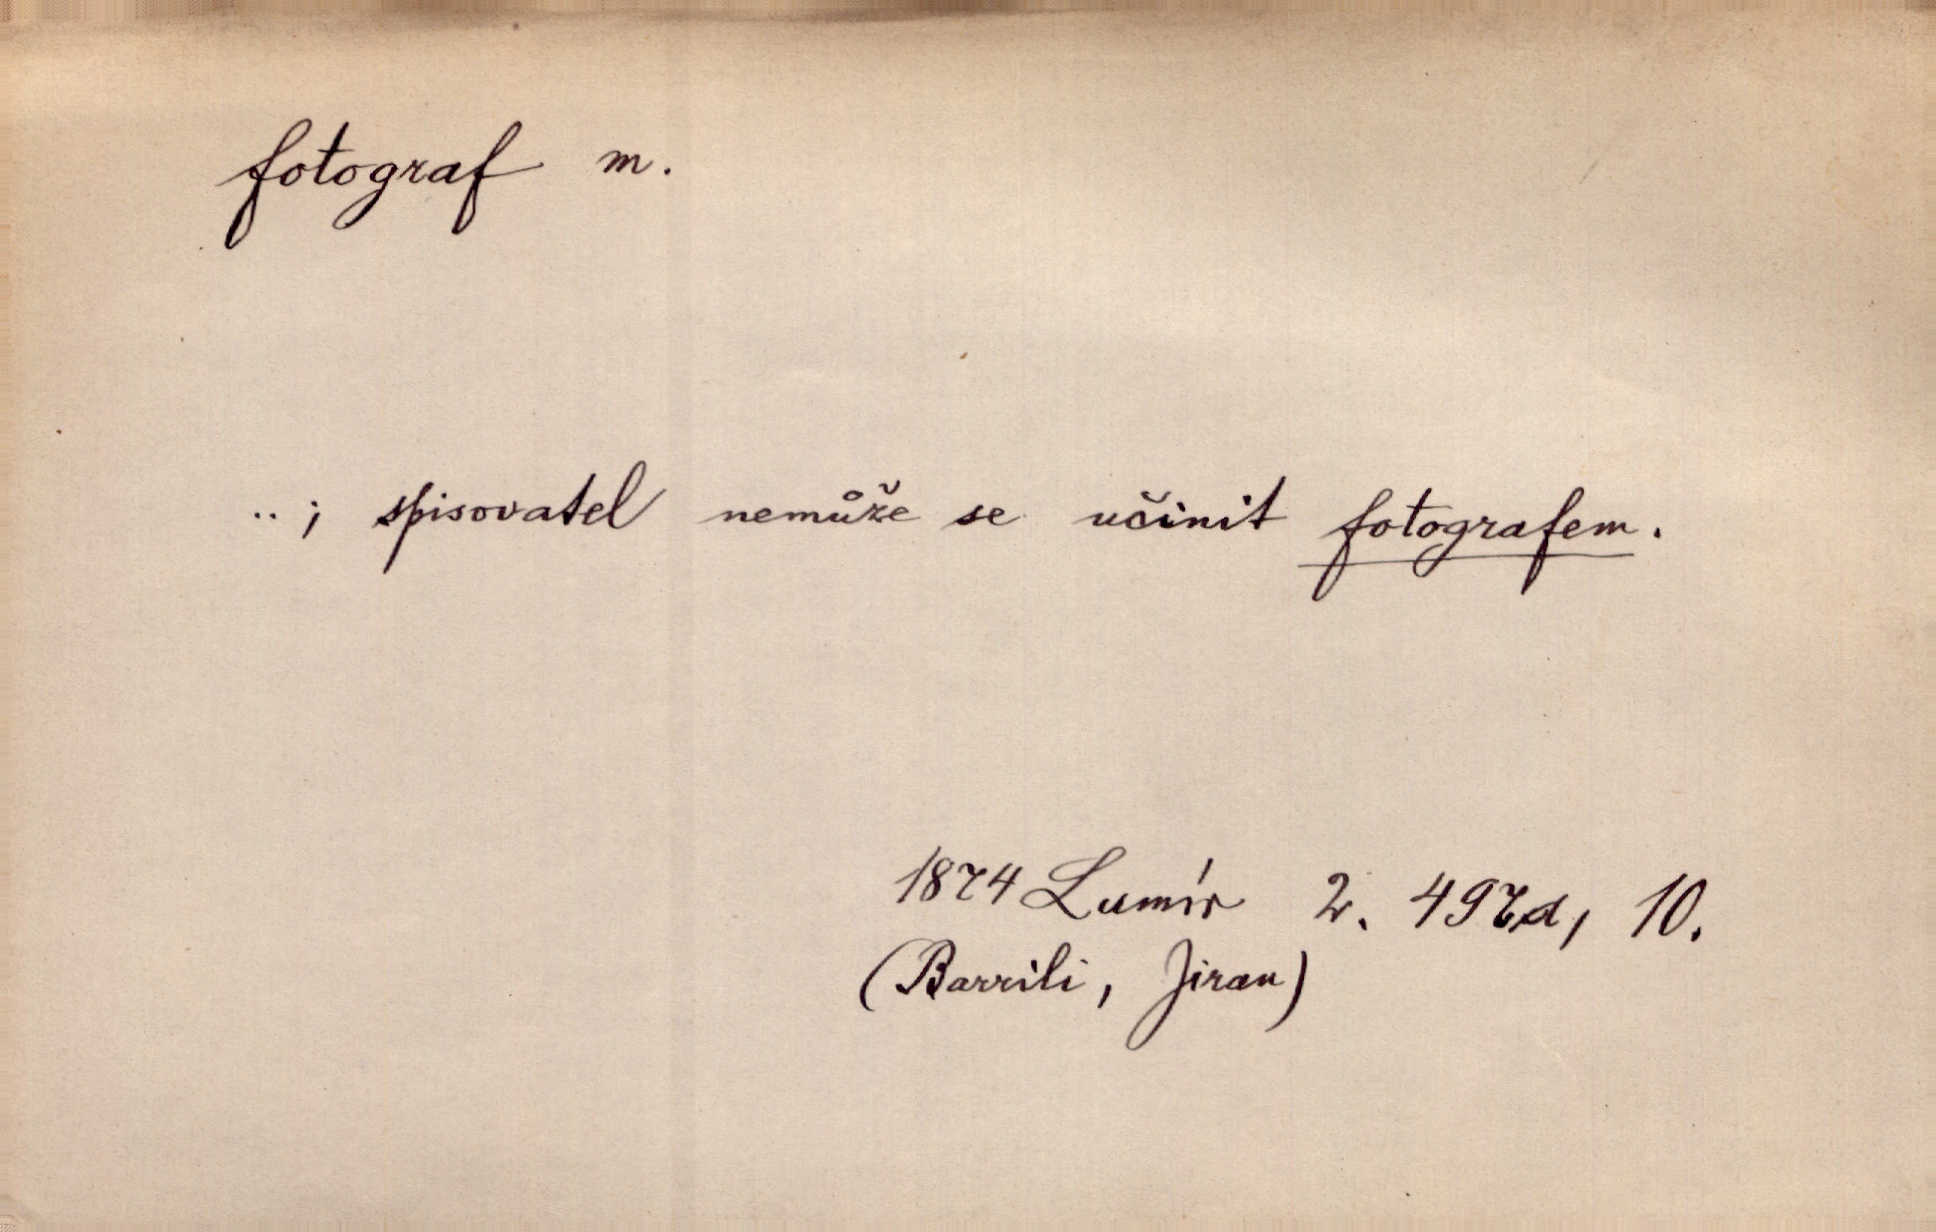 fotograf m.
..; spisovatel nemůže se učinit fotografem.
1874 Lumír 2. 497a, 10.
(Barrili, Jiran)